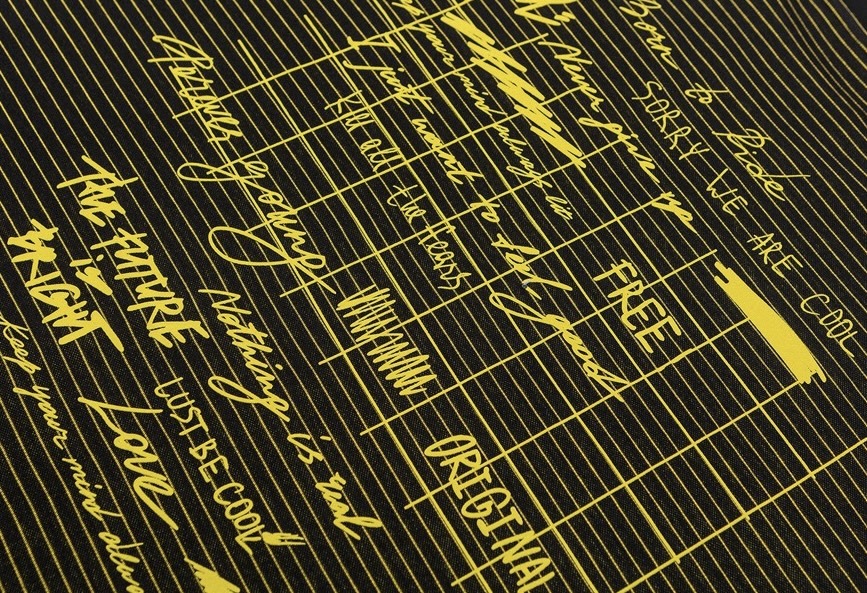 Born to Ride
SORRY WE ARE COOL
Never give up
your mind always in
I just want to feel good
Kill all the
FREE
Forever young
THE FUTURE
is
BRIGHT
Nothing is real
ORIGINAL
LUST BE COOL
Love
Keep your mind alway